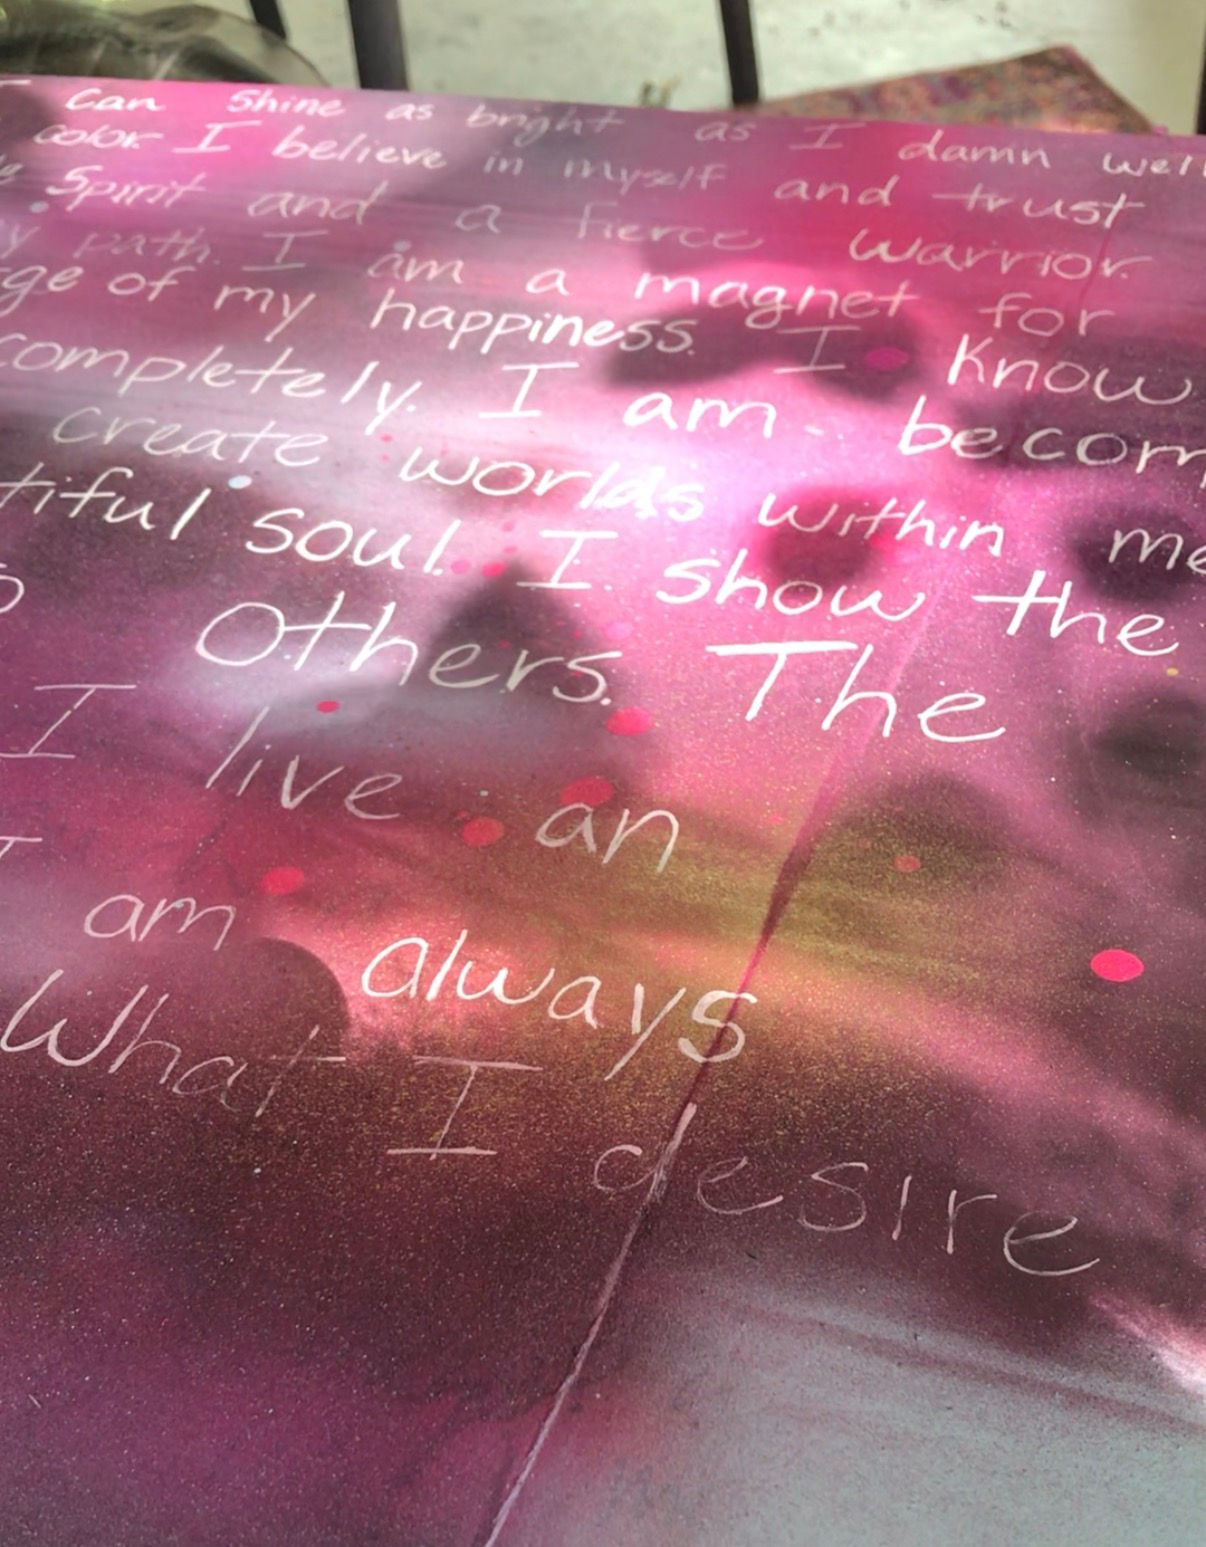 I can shine as bright as I damn well
color. I believe in myself and trust
Spirit and a fierce warrior.
path. I am a magnet for
ge of my happiness. I know
completely. I am becom
create worlds within me
tiful soul. I show the
others. The
I live an
I am always
What I desire